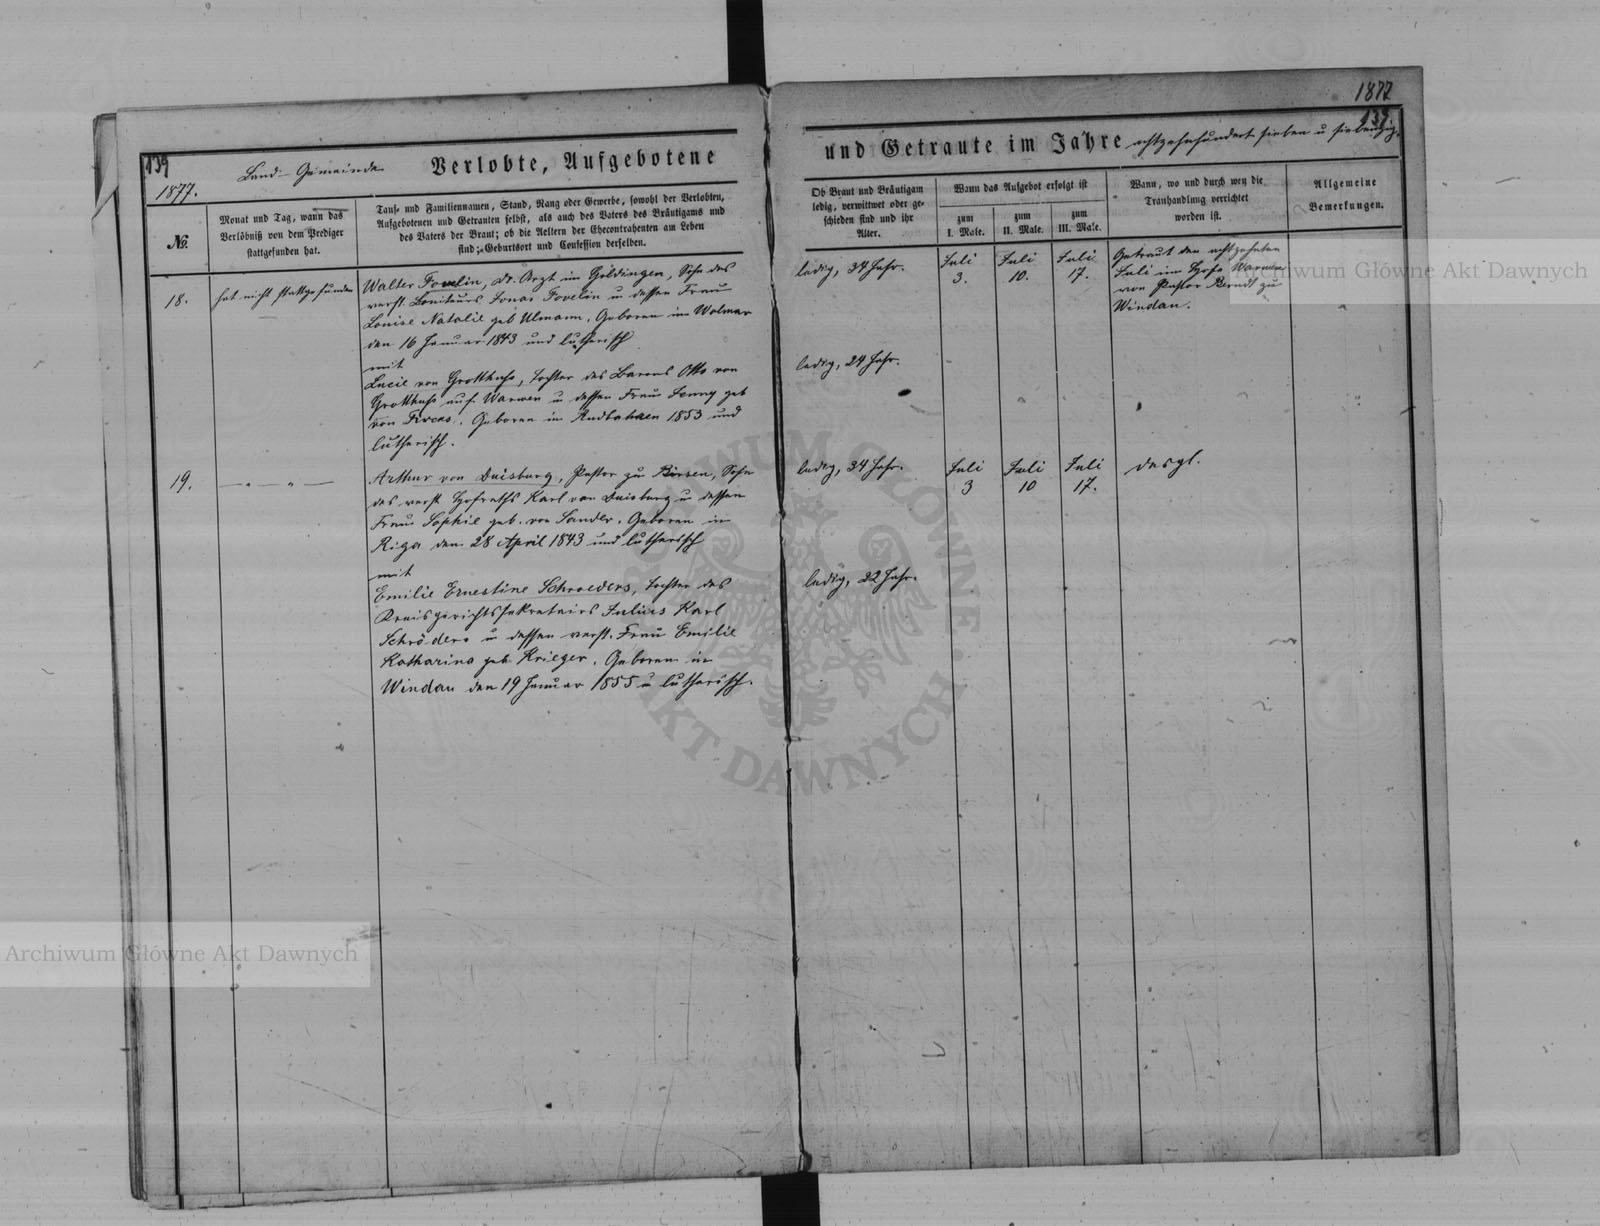 1877
139
139
1877.
Land-Gemeinde
Verlobte, Aufgebotene
und Getraute im Jahre achtzehnhundert sieben u siebenzig.
No.
Monat und Tag, wann das
Verlöbniß von dem Prediger
stattgefunden hat.
Tauf- und Familiennamen, Stand, Rang oder Gewerbe, sowohl der Verlobten,
Aufgebotenen und Getrauten selbst, als auch des Vaters des Bräutigams und
des Vaters der Braut; ob die Aeltern der Ehecontrahenten am Leben
sind; Geburtsort und Confession derselben.
Ob Braut und Bräutigam
ledig, verwittwet oder ge-
schieden sind und ihr
Alter.
Wann das Aufgebot erfolgt ist
zum
I. Male.
zum
II. Male.
zum
III. Male.
Wann, wo und durch wen die
Trauhandlung verrichtet
worden ist.
Allgemeine
Bemerkungen.
18.
hat nicht stattgefunden
Walter Fovelin, Dr. Arzt in Goldingen, Sohn des
verst. Boniteurs Jonas Fovelin u dessen Frau
Louise Natalie geb Ulmann. Geboren in Wolmar
den 16 Januar 1843 und lutherisch
mit
Lucie von Grotthuß, Tochter des Barons Otto von
Grotthuß auf Warwen u dessen Frau Jenny geb
von Fircks. Geboren in 1853 und
lutherisch.
ledig, 34 Jahr.
ledig, 24 Jahr.
Juli
3.
Juli
10.
Juli
17.
Getraut den achtzehnten
Juli im Hofe Warwen
von Pastor Berndt zu
Windau.
19.
— „ — „ —
Arthur von Duisburg, Pastor zu Birsen, Sohn
des verst Hofraths Karl von Duisburg u dessen
Frau Sophie geb. von Sander. Geboren in
Riga den 28 April 1843 und lutherisch
mit
Emilie Ernestine Schroeders, Tochter des
Kreisgerichtssekretairs Julius Karl
Schröders u dessen verst. Frau Emilie
Katharina geb Krieger. Geboren in
Windau den 19 Januar 1855 u lutherisch.
ledig, 34 Jahr.
ledig, 22 Jahr.
Juli
3
Juli
10
Juli
17.
desgl.
Archiwum Główne Akt Dawnych
Archiwum Główne Akt Dawnych
ARCHIWUM GŁÓWNE AKT DAWNYCH